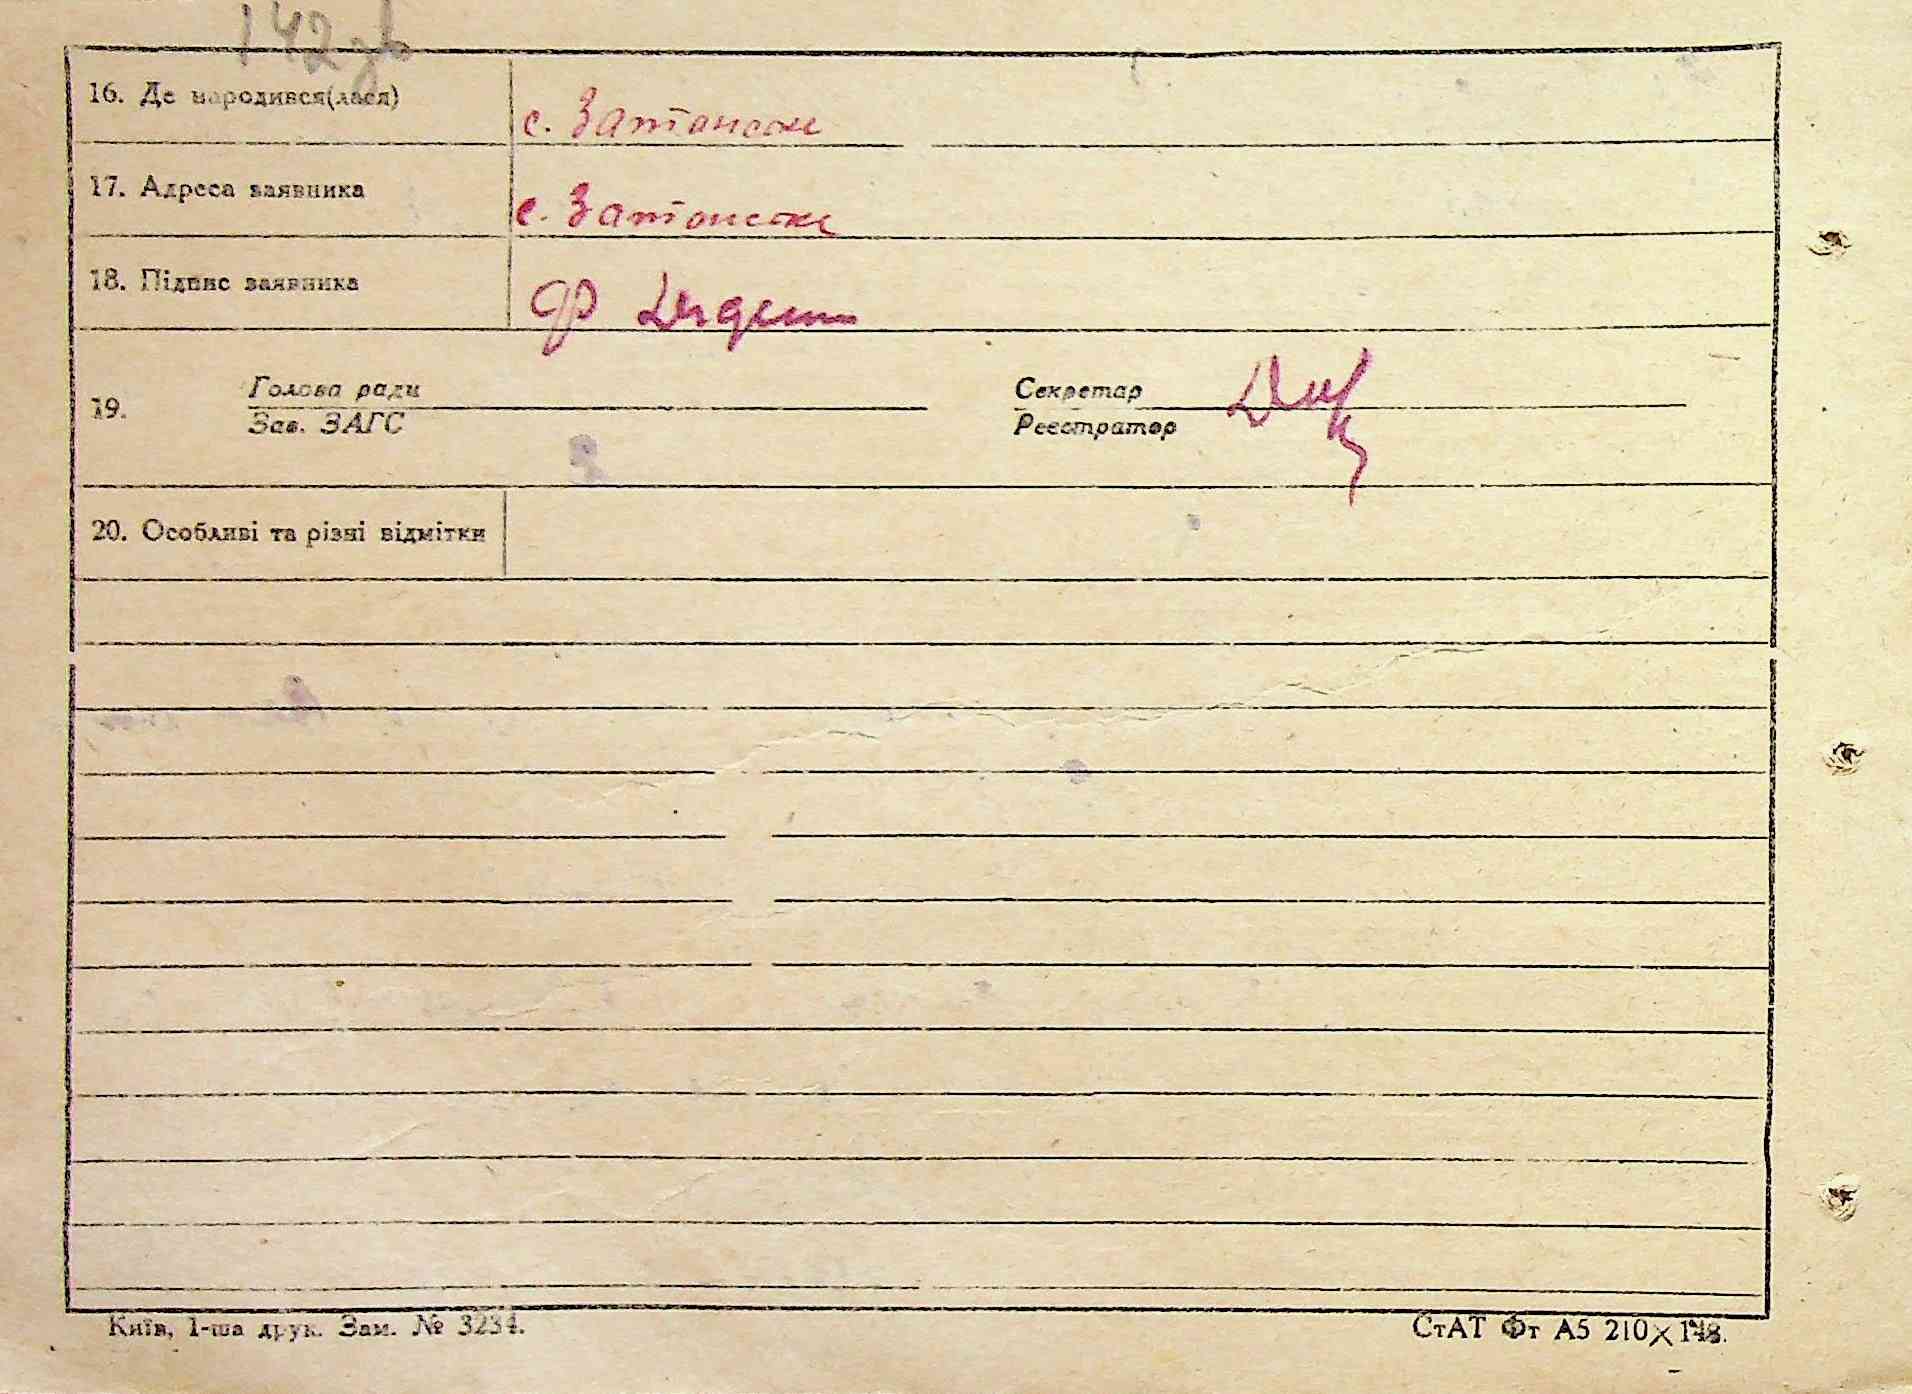 142 зв
16. Де народився(лася) с. Затонське
17. Адреса заявника с. Затонське
18. Підпис заявника
19. Голова ради Секретар
Зав. ЗАГС Реєстратор
20. Особливі та різні відмітки
Київ, 1-ша друк. Зам. № 3234. СтАТ Фт А5 210×148.